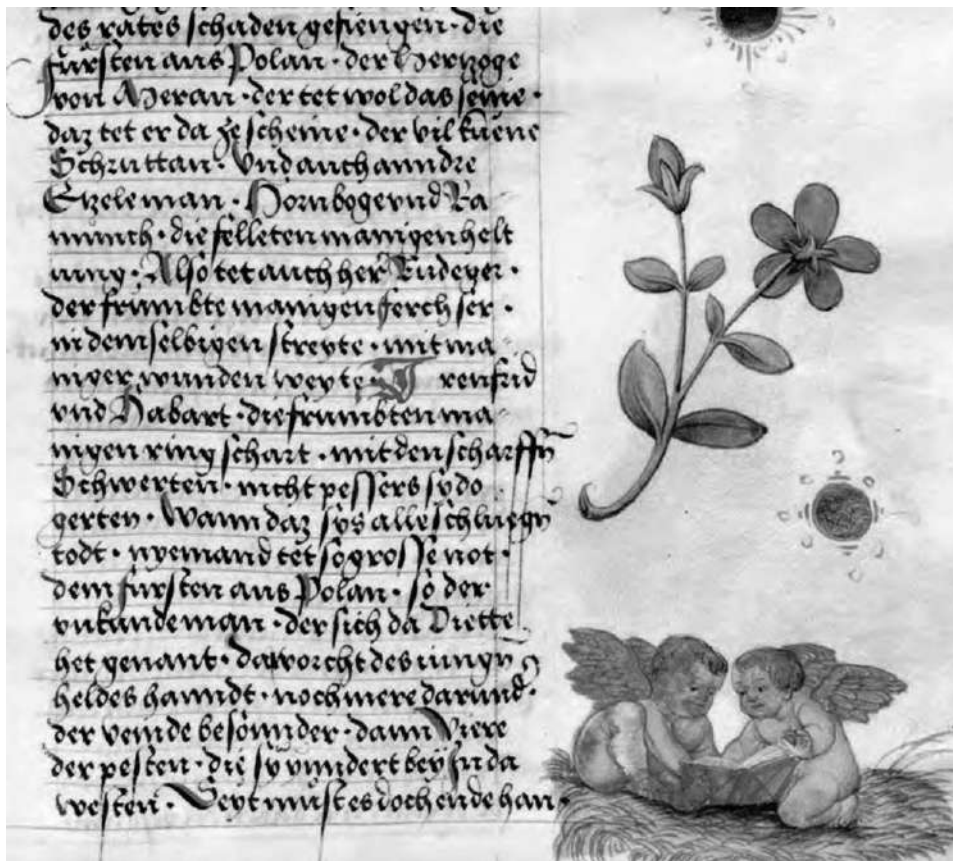 des rates schaden gefiengen · die
fürsten aus Polan · der Hertzoge
von Meran · der tet wol das seine ·
daz tet er da ze scheine · der vil kuene
Schruttan · Vnd auch anndre
Etzele man · Hornboge vnd Ra
munch · die felleten manigen helt
iung · Also tet auch her Rudeger ·
der frumbte manigen ferch ser ·
in demselbigen streyte · mit ma
niger wunden weyte · Irenfrid
vnd Habart · die frumbten ma
nigen ring schart · mit den scharffn
Schwerten · nicht pessers sy do
gerten · Wann daz sys alle schluegn
todt · nyemand tet so grosse not ·
dem fürsten aus Polan · so der
vnkunde man · der sich da Diette
het genant · da worcht des iungn
heldes hanndt · noch mere darund ·
der veinde besonnder · dann Viere
der pesten · die sy vnndert bey in da
westen · Seyt muest es doch ende han ·